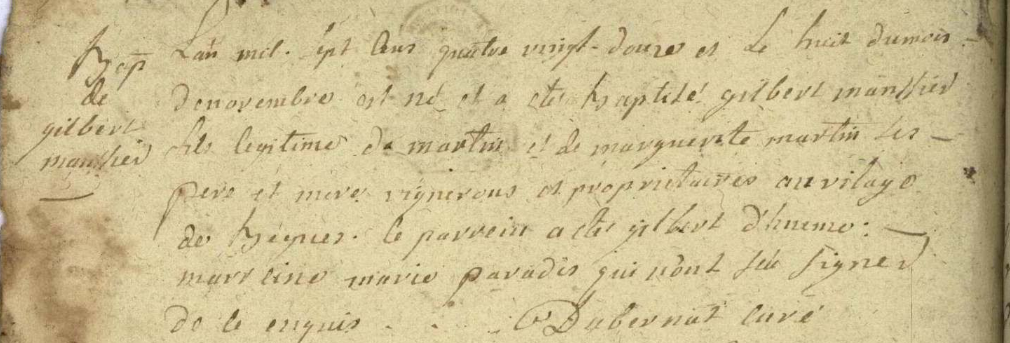 Bap
de
gilbert
manssier
L'an mil. sept cens quatre vingt-douze et Le huit dumois
denovembre est né et a eté baptisé gilbert manssier
fils legitime de martin et de marguerite martin ses
pere et mere vignerons et propriétaires au vilage
de begues. le parrein a eté gilbert d'hume:
marreine marie paradis qui n'ont sçu signer
de ce enquis . . . Dubernat curé